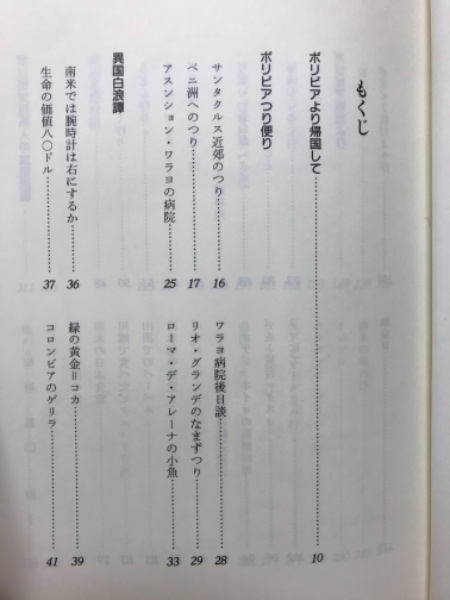 もくじ
ボリビアより帰国して……………………10
ボリビアつり便り
サンタクルス近郊のつり……………16
ベニ洲へのつり……………17
アスンション・ワラヨの病院……………25
ワラヨ病院後日談……………28
リオ・グランデのなまずつり……………29
ローマ・デ・アレーナの小魚……………33
異国白浪譚
南米では腕時計は右にするか……………36
生命の価値八〇ドル……………37
緑の黄金＝コカ……………39
コロンビアのゲリラ……………41